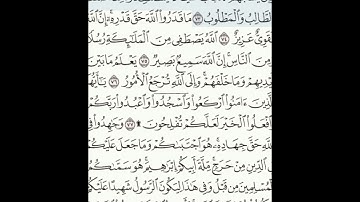 الطَّالِبُ وَالْمَطْلُوبُ ٧٣ مَا قَدَرُوا اللَّهَ حَقَّ قَدْرِهِ إِنَّ اللَّهَ
لَقَوِيٌّ عَزِيزٌ ٧٤ اللَّهُ يَصْطَفِي مِنَ الْمَلَائِكَةِ رُسُلًا
مِنَ النَّاسِ إِنَّ اللَّهَ سَمِيعٌ بَصِيرٌ ٧٥ يَعْلَمُ مَا بَيْنَ
يْدِيهِمْ وَمَا خَلْفَهُمْ وَإِلَى اللَّهِ تُرْجَعُ الْأُمُورُ ٧٦ يَا أَيُّهَا
لَّذِينَ آمَنُوا ارْكَعُوا وَاسْجُدُوا وَاعْبُدُوا رَبَّكُمْ
افْعَلُوا الْخَيْرَ لَعَلَّكُمْ تُفْلِحُونَ ۩ ٧٧ وَجَاهِدُوا فِي
للَّهِ حَقَّ جِهَادِهِ هُوَ اجْتَبَاكُمْ وَمَا جَعَلَ عَلَيْكُمْ
الدِّينِ مِنْ حَرَجٍ مِلَّةَ أَبِيكُمْ إِبْرَاهِيمَ هُوَ سَمَّاكُمُ
لْمُسْلِمِينَ مِنْ قَبْلُ وَفِي هَذَا لِيَكُونَ الرَّسُولُ شَهِيدًا عَلَيْكُمْ